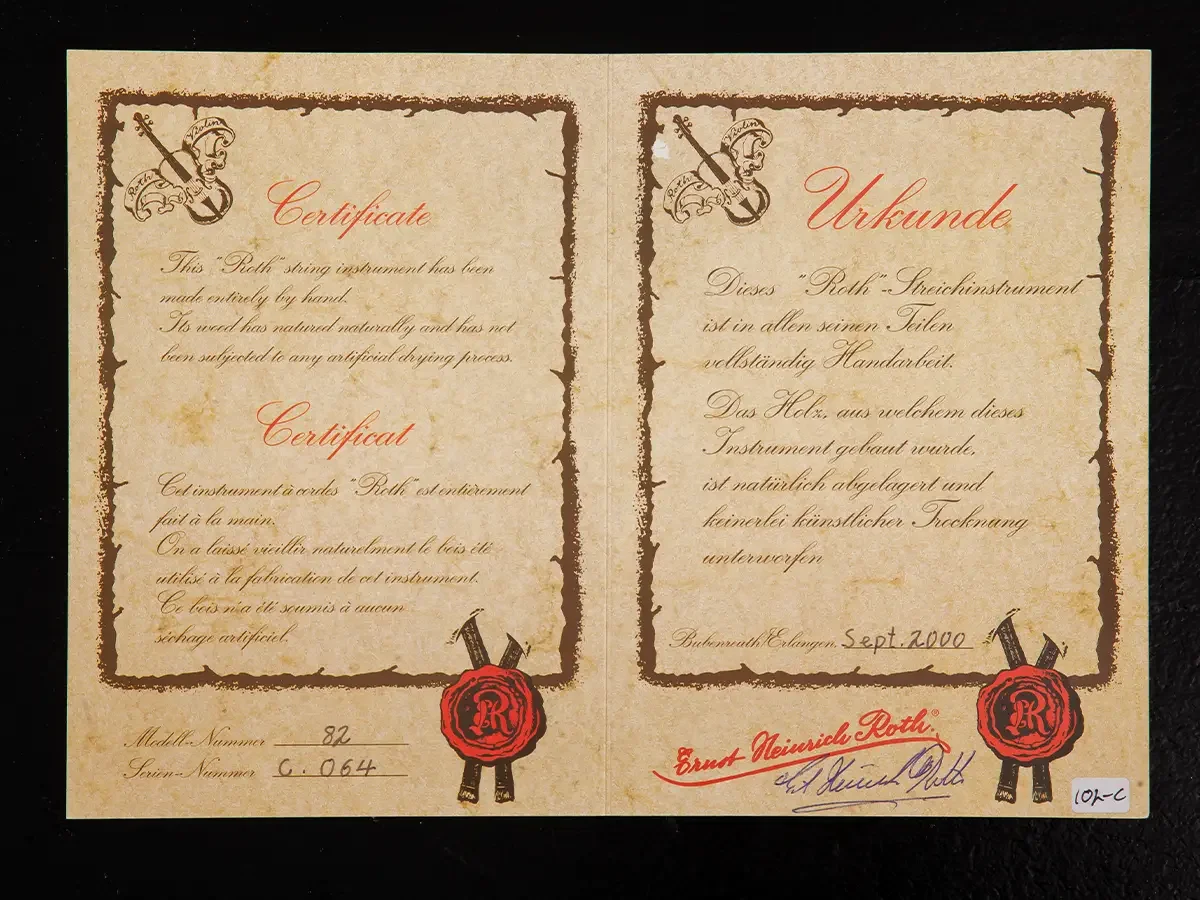 Violin
Roth
Certificate
This "Roth" string instrument has been
made entirely by hand.
Its wood has natured naturally and has not
been subjected to any artificial drying process.
Certificat
Cet instrument à cordes "Roth" est entièrement
fait à la main.
On a laissé vieillir naturelment le bois été
utilisé à la fabrication de cet instrument.
Ce bois n'a été soumis à aucun
séchage artificiel.
R
Modell-Nummer 82
Serien-Nummer C. 064
Violin
Roth
Urkunde
Dieses "Roth"-Streichinstrument
ist in allen seinen Teilen
vollständig Handarbeit.
Das Holz, aus welchem dieses
Instrument gebaut wurde,
ist natürlich abgelagert und
keinerlei künstlicher Trocknung
unterworfen
Bubenreuth/Erlangen, Sept. 2000
R
Ernst Heinrich Roth®
Ernst Heinrich Roth
102-C